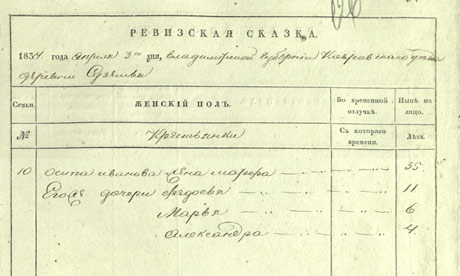 РЕВИЗСКАЯ СКАЗКА.
1834 года Апреля 3го дня, Владимирской губернии Ковровского уезда
деревни
Семьи. ЖЕНСКІЙ ПОЛЪ. Во временной отлучкѣ. Нынѣ на лицо.
№ Крестьянки Съ котораго времени. Лѣта.
10 Осипа Иванова жена Марфа 35
Его дочери Федосья 11
Марья 6
Александра 4